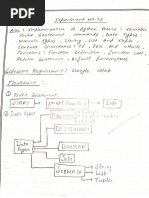 Experiment No-03
Aim: Implementation of Python Basics: Variable
Print Statement, Comments, Data Types:
Numeric Types, String, List and Tuple,
Control Statements: If, For and While,
Functions: Function Definition, Function Call,
Return Statement, Default Parameters.
Software Requirement: Google Colab
Flowchart:
① Print Statement
START
Print
END
② Data Types
DICTIONARY
Data
Types
BOOLEAN
Sets
SEQUENCE
String
List
Tuple